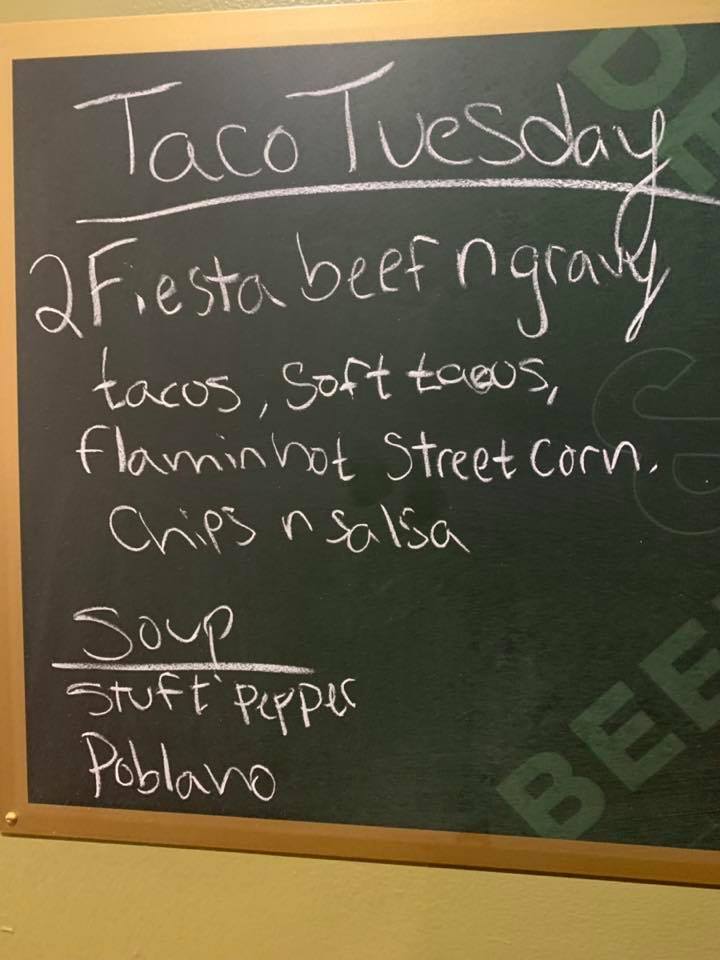 Taco Tuesday
2 Fiesta beef n gravy
tacos, soft tacos,
flamin hot street corn.
Chips n salsa
Soup
Stuft pepper
Poblano
BEE